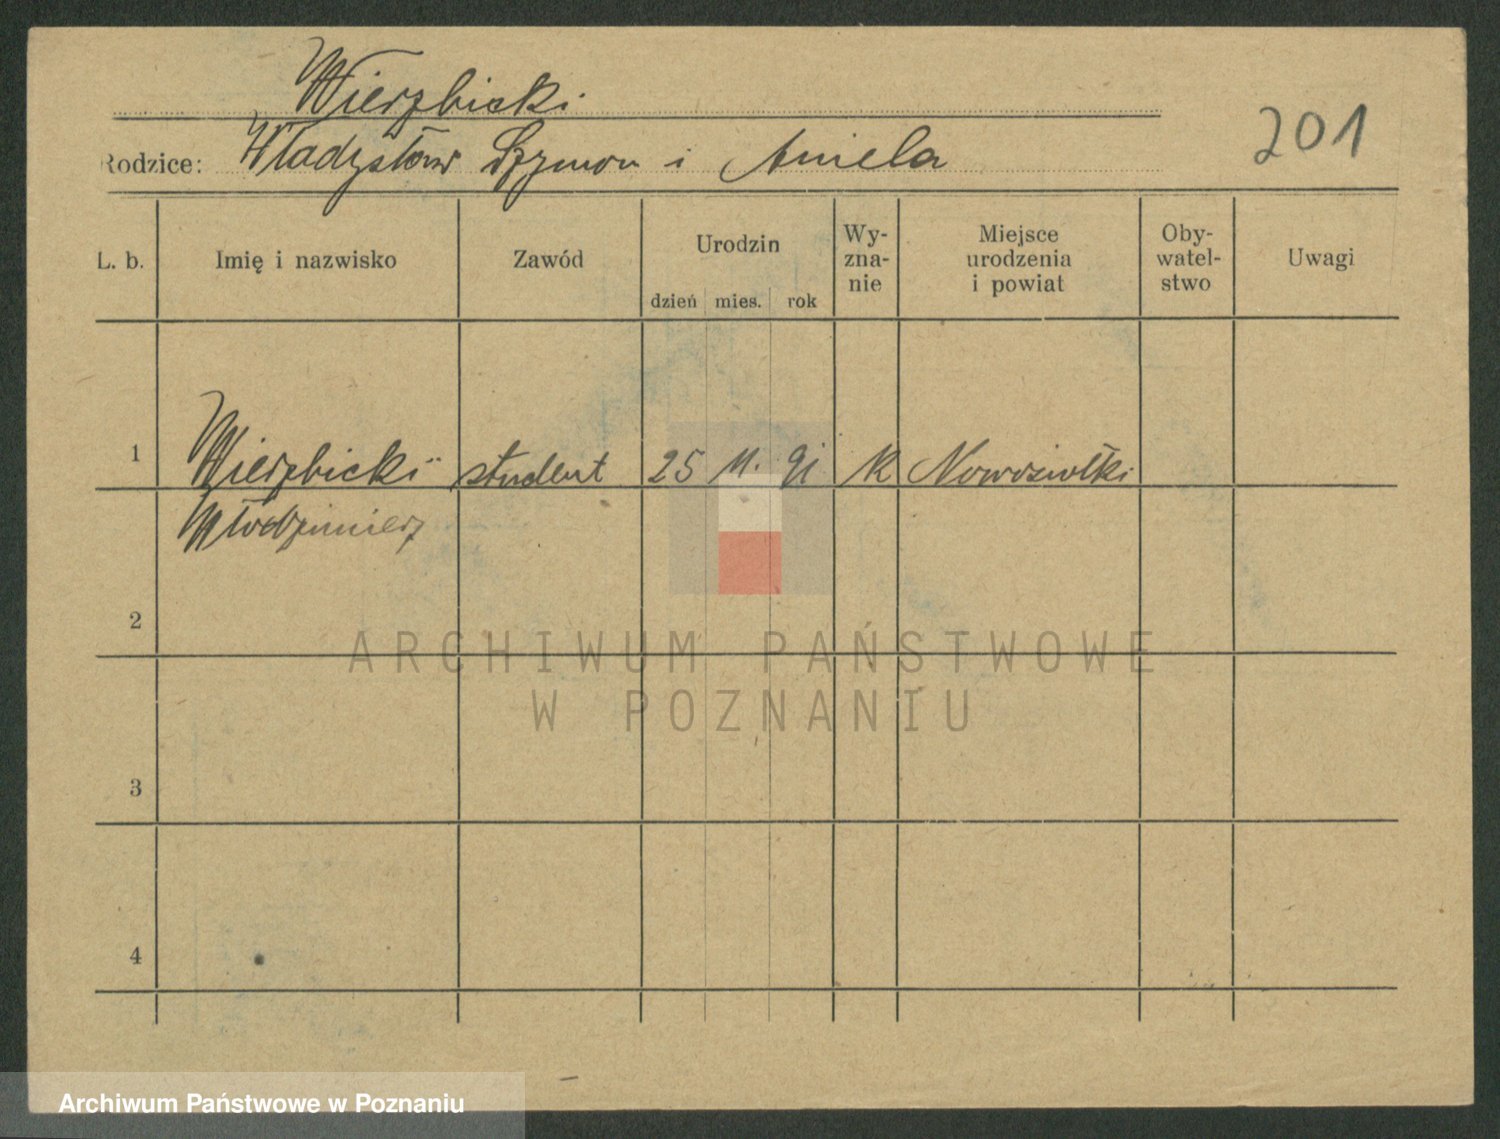 Wierzbicki
201
Rodzice: Władysław Szymon i Aniela
L. b. Imię i nazwisko Zawód Urodzin dzień mies. rok Wy-zna-nie Miejsce urodzenia i powiat Oby-watel-stwo Uwagi
1 Wierzbicki student 25 11. 91 k Nowosiółki
Włodzimierz
2
ARCHIWUM PAŃSTWOWE
W POZNANIU
3
4
Archiwum Państwowe w Poznaniu